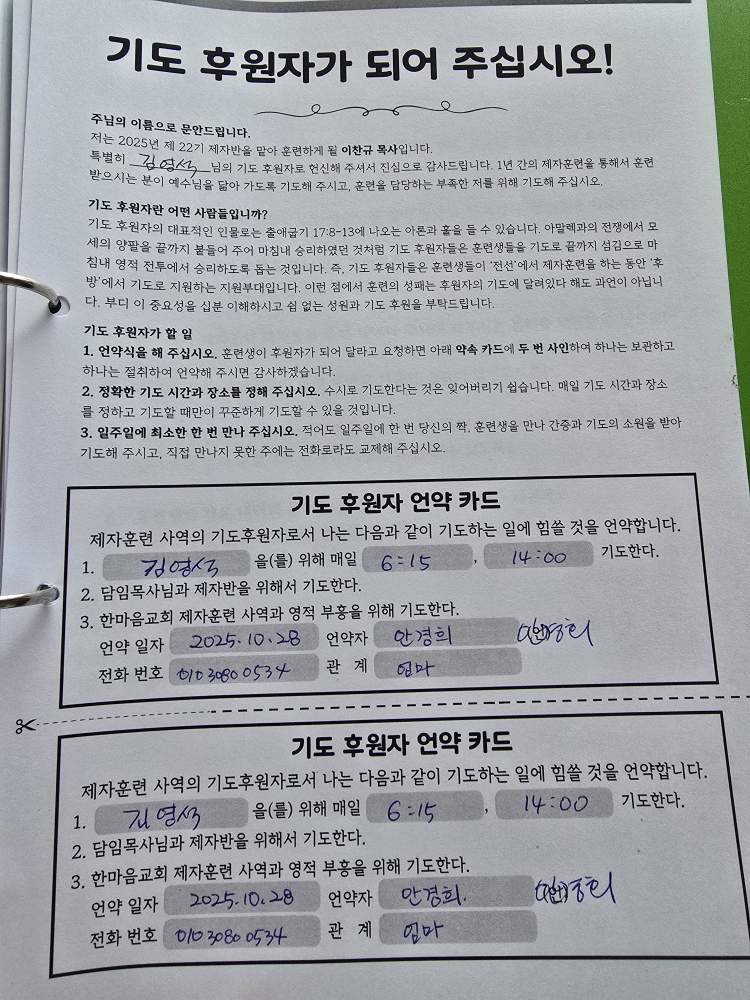 기도 후원자가 되어 주십시오!
주님의 이름으로 문안드립니다.
저는 2025년 제 22기 제자반을 맡아 훈련하게 될 이찬규 목사입니다.
특별히 김영석 님의 기도 후원자로 헌신해 주셔서 진심으로 감사드립니다. 1년 간의 제자훈련을 통해서 훈련
받으시는 분이 예수님을 닮아 가도록 기도해 주시고, 훈련을 담당하는 부족한 저를 위해 기도해 주십시오.
기도 후원자란 어떤 사람들입니까?
기도 후원자의 대표적인 인물로는 출애굽기 17:8-13에 나오는 아론과 훌을 들 수 있습니다. 아말렉과의 전쟁에서 모
세의 양팔을 끝까지 붙들어 주어 마침내 승리하였던 것처럼 기도 후원자들은 훈련생들을 기도로 끝까지 섬김으로 마
침내 영적 전투에서 승리하도록 돕는 것입니다. 즉, 기도 후원자들은 훈련생들이 '전선'에서 제자훈련을 하는 동안 '후
방'에서 기도로 지원하는 지원부대입니다. 이런 점에서 훈련의 성패는 후원자의 기도에 달려있다 해도 과언이 아닙니
다. 부디 이 중요성을 십분 이해하시고 쉼 없는 성원과 기도 후원을 부탁드립니다.
기도 후원자가 할 일
1. 언약식을 해 주십시오. 훈련생이 후원자가 되어 달라고 요청하면 아래 약속 카드에 두 번 사인하여 하나는 보관하고
하나는 절취하여 언약해 주시면 감사하겠습니다.
2. 정확한 기도 시간과 장소를 정해 주십시오. 수시로 기도한다는 것은 잊어버리기 쉽습니다. 매일 기도 시간과 장소
를 정하고 기도할 때만이 꾸준하게 기도할 수 있을 것입니다.
3. 일주일에 최소한 한 번 만나 주십시오. 적어도 일주일에 한 번 당신의 짝, 훈련생을 만나 간증과 기도의 소원을 받아
기도해 주시고, 직접 만나지 못한 주에는 전화로라도 교제해 주십시오.
기도 후원자 언약 카드
제자훈련 사역의 기도후원자로서 나는 다음과 같이 기도하는 일에 힘쓸 것을 언약합니다.
1. 김영석 을(를) 위해 매일 6:15, 14:00 기도한다.
2. 담임목사님과 제자반을 위해서 기도한다.
3. 한마음교회 제자훈련 사역과 영적 부흥을 위해 기도한다.
언약 일자 2025.10.28 언약자 안경희
전화 번호 010 3080 0534 관 계 엄마
기도 후원자 언약 카드
제자훈련 사역의 기도후원자로서 나는 다음과 같이 기도하는 일에 힘쓸 것을 언약합니다.
1. 김영석 을(를) 위해 매일 6:15, 14:00 기도한다.
2. 담임목사님과 제자반을 위해서 기도한다.
3. 한마음교회 제자훈련 사역과 영적 부흥을 위해 기도한다.
언약 일자 2025.10.28 언약자 안경희.
전화 번호 010 3080 0534 관 계 엄마